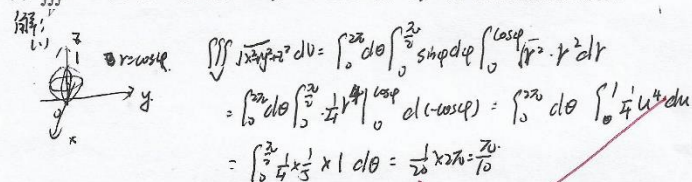 解:
(1) r=cosφ. ∭√x²+y²+z² dv = ∫₀^{2π} dθ ∫₀^{π/2} sinφ dφ ∫₀^{cosφ} √r² · r² dr
= ∫₀^{2π} dθ ∫₀^{π/2} 1/4 r⁴ |₀^{cosφ} d(-cosφ) = ∫₀^{2π} dθ ∫₀^1 1/4 u⁴ du
= ∫₀^{π/2} 1/4 × 1/5 × 1 dθ = 1/20 × 2π = π/10
z
1
y
0
x